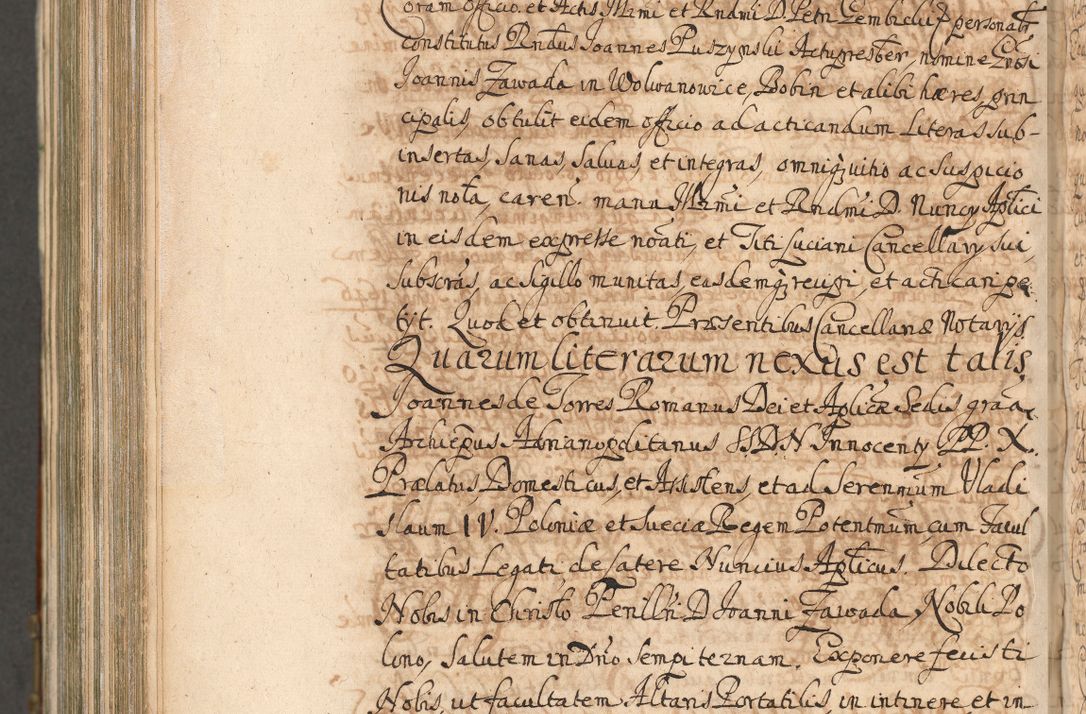 Coram officio et Actis Illrmi et Rndmi D. Petri Gembicki personalr
constitutus Rndus Joannes Puszynski Actupresbter, nomine Gnosi
Joannis Zawada in Wolwanowice, Bobin et alibi hæres, prin
cipalis, obtulit eidem officio ad acticandum Literas sub-
insertas, Sanas, Salvas, et integras, omniq; vitio ac Suspicio
nis nota, caren. manu Illrmi et Rndmi D. Nuncy Aplici
in eisdem expresse noati, et Titi Luciani Cancellary sui,
subscras, ac sigillo munitas, easdemq; recipi, et acticari pe-
tyt. Quod et obtinuit. Præsentibus Cancellariæ Notarys
Quarum literarum nexus est talis
Joannes de Torres Romanus Dei et Aplicæ Sedis graa,
Archiepus Adrianopolitanus SSDN Innocenty PP. X.
Prælatus Domesticus, et Assistens, et ad Serenmum Vladi
slaum IV. Poloniæ et Sueciæ Regem Potentmum, cum Facul
tatibus Legati de latere Nuncius Aplicus. Dilecto
Nobis in Christo Perilllri D Joanni Zawada, Nobili Po
lono, Salutem in Dno sempiternam. Exponere fecisti
Nobis, ut facultatem Altaris Portatilis, in itinere, et in